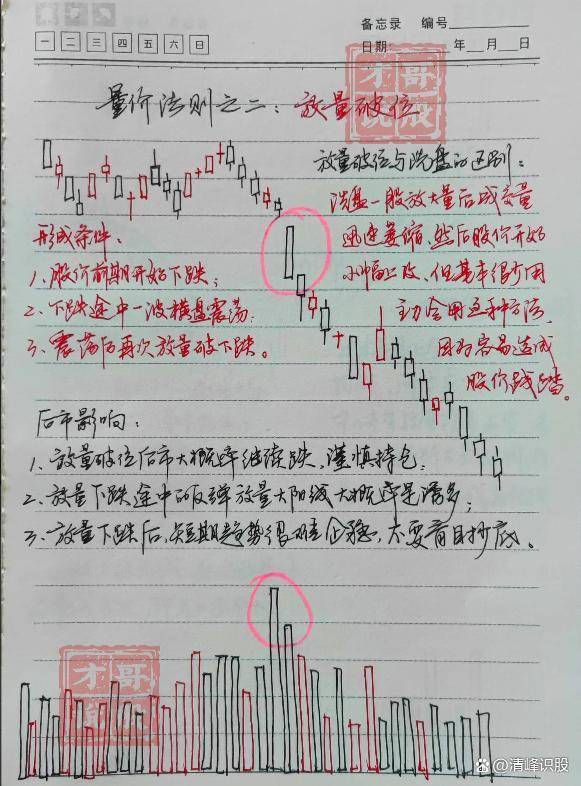 备忘录 编号
一 二 三 四 五 六 日
日期 年 月 日
量价法则之二：放量破位
放量破位与洗盘的区别：
洗盘一般放大量后成交量
迅速萎缩，然后股价开始
小幅上攻，但基本很少用
主力会用这种方法，
因为容易造成
股价践踏。
形成条件：
1、股价前期开始下跌；
2、下跌途中一波横盘震荡；
3、震荡后再次放量破下跌。
后市影响：
1、放量破位后市大概率继续跌，谨慎持仓；
2、放量下跌途中的反弹放量大阳线大概率是诱多；
3、放量下跌后，短期趋势很难企稳，不要盲目抄底。
才哥说戒
才哥说戒
@清峰识股